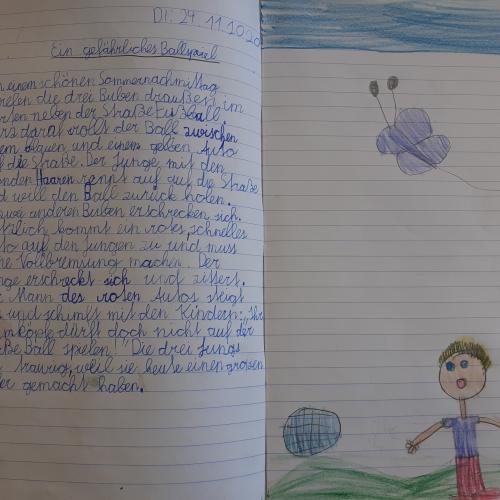 Di: 29.11.202
Ein gefährliches Ballspiel
einem schönen Sommernachmittag
die drei Buben draußen im
neben der Straße Fußball.
darauf rollt der Ball zwischen
blauen und einem gelben Auto
die Straße. Der Junge mit den
Haaren rennt auf auf die Straße
will den Ball zurück holen.
anderen Buben erschrecken sich.
kommt ein rotes schnelles
auf den Jungen zu und muss
Vollbremsung machen. Der
erschreckt sich und zittert.
Mann des roten Autos steigt
und schimft mit den Kindern: „Ihr
dürft doch nicht auf der
Ball spielen!" Die drei Jungs
traurig, weil sie heute einen grosen
gemacht haben.